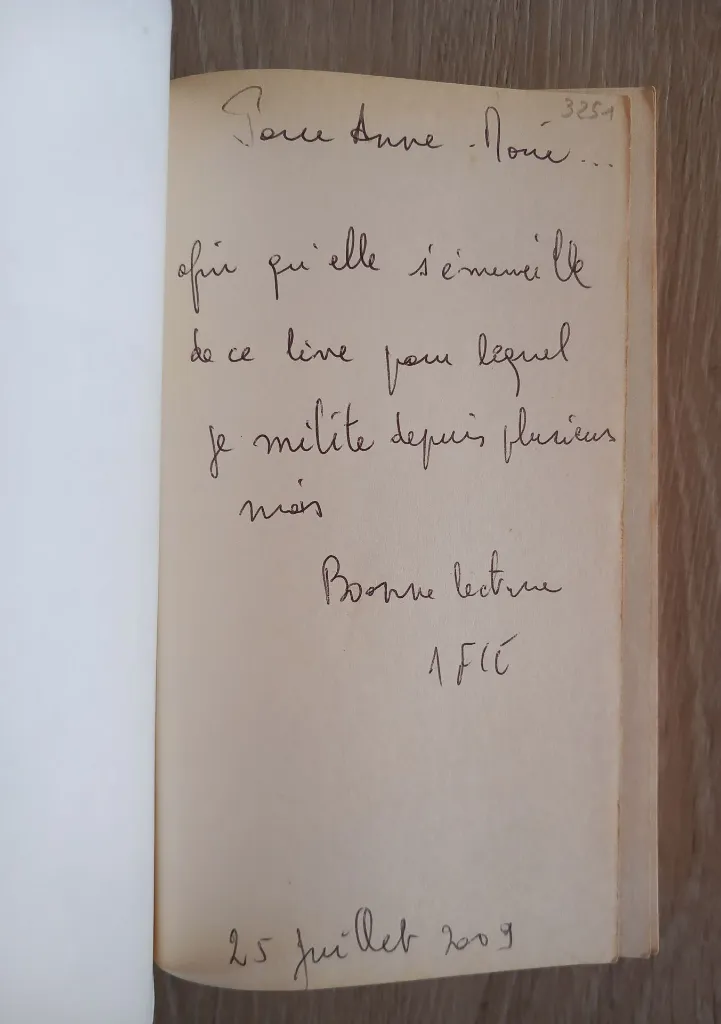 3251
Pour Anne-Marie...
afin qu'elle s'émerveille
de ce livre pour lequel
je milite depuis plusieurs
mois
Bonne lecture
25 juillet 2009